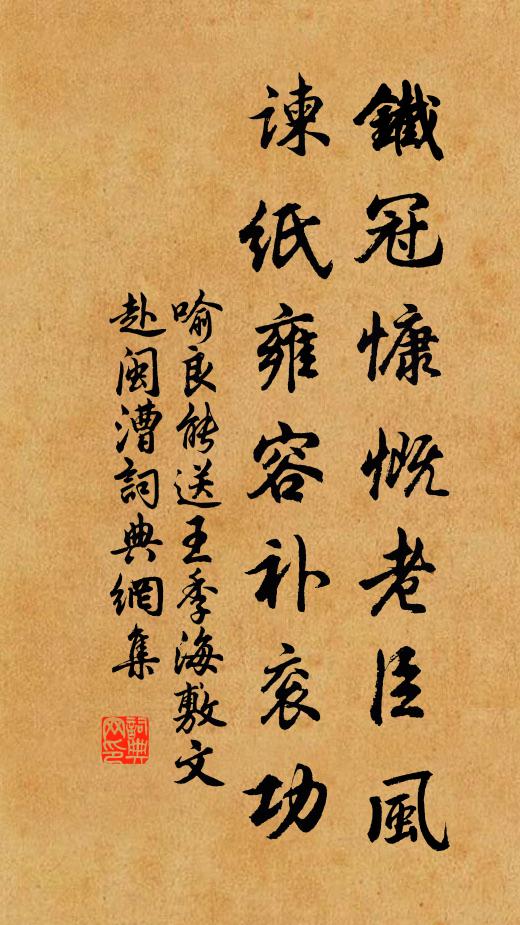 鐵冠慷慨老臣風
諫紙雍容补衮功
喻良能送王季海敷文
赴闽漕詞典網集
詞典网印